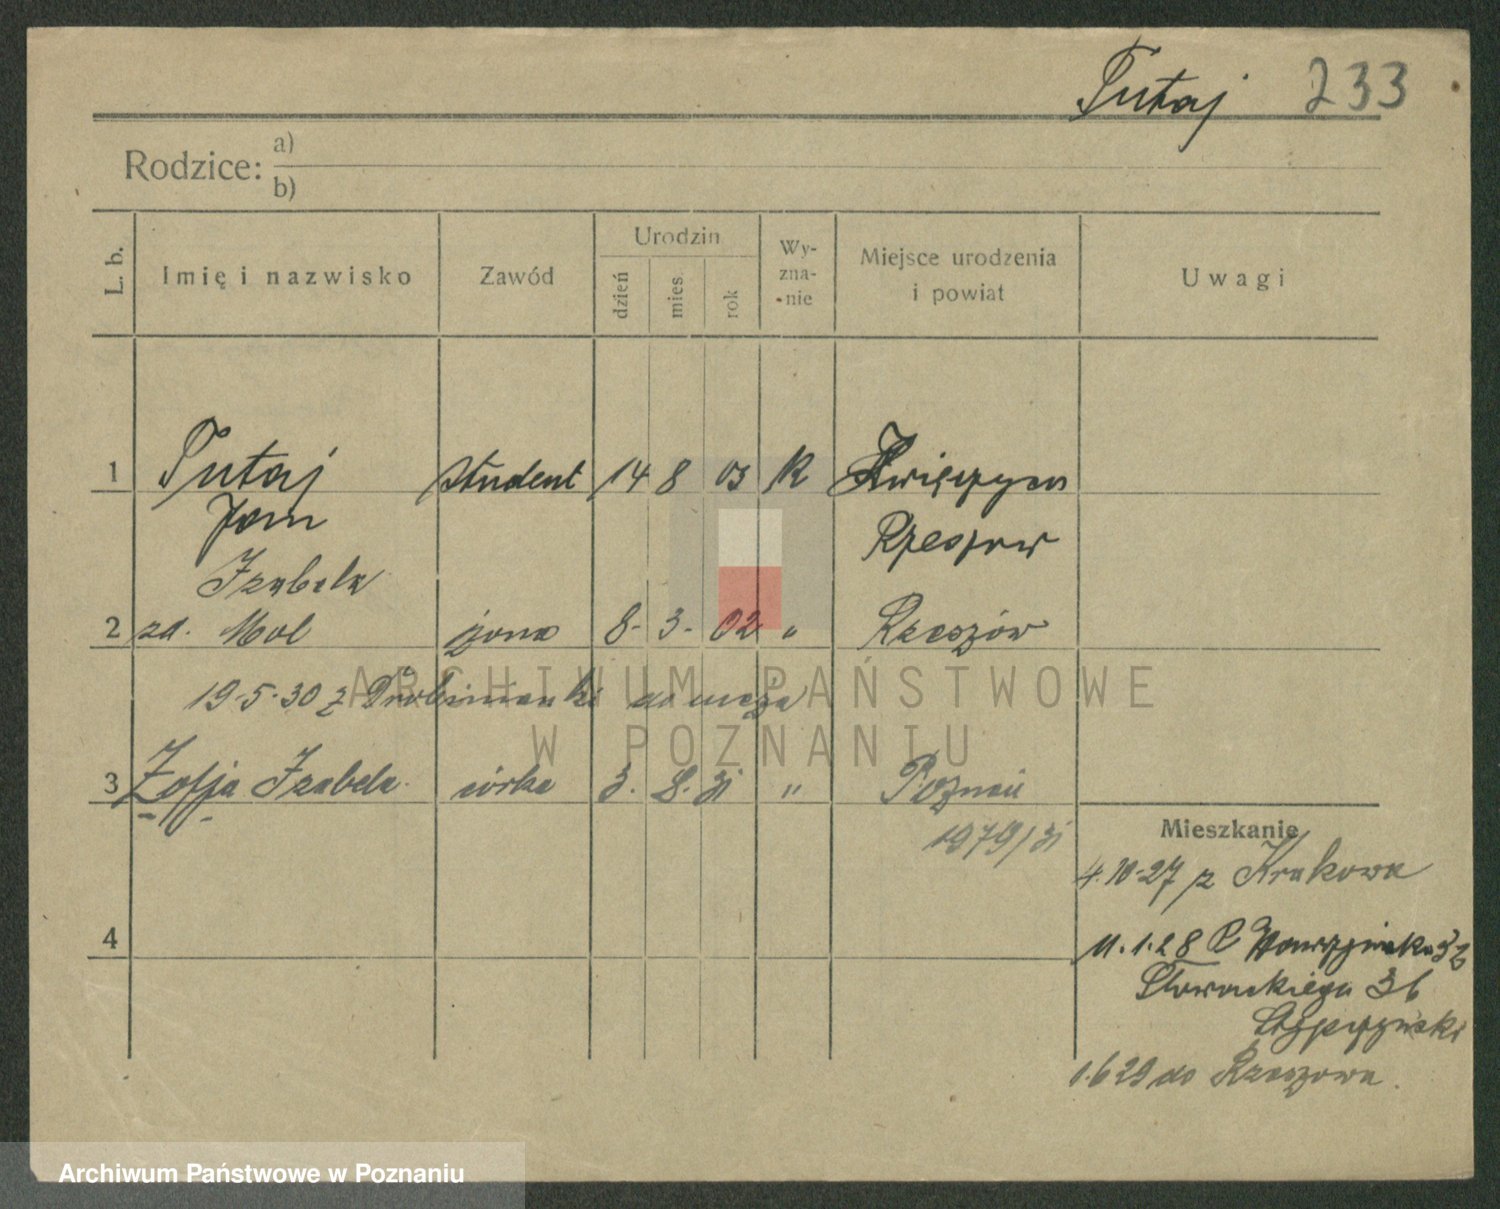 Tutaj 233
Rodzice: a)
b)
L. b. Imię i nazwisko Zawód Urodzin dzień mies rok Wy-zna-nie Miejsce urodzenia i powiat Uwagi
1 Tutaj student 14 8 03 R
Jan Rzeszow
Izabela
2 zd. Mol żona 8. 3. 02 " Rzeszów
19.5.30 z do męża
3 Zofja Izabela córka 3. 8. 31 " Poznań
1979/31
Mieszkanie
4.10.27 z Krakowa
4
11.1.28
Słowackiego 36
1.6 29 do Rzeszowa.
ARCHIWUM PAŃSTWOWE
W POZNANIU
Archiwum Państwowe w Poznaniu